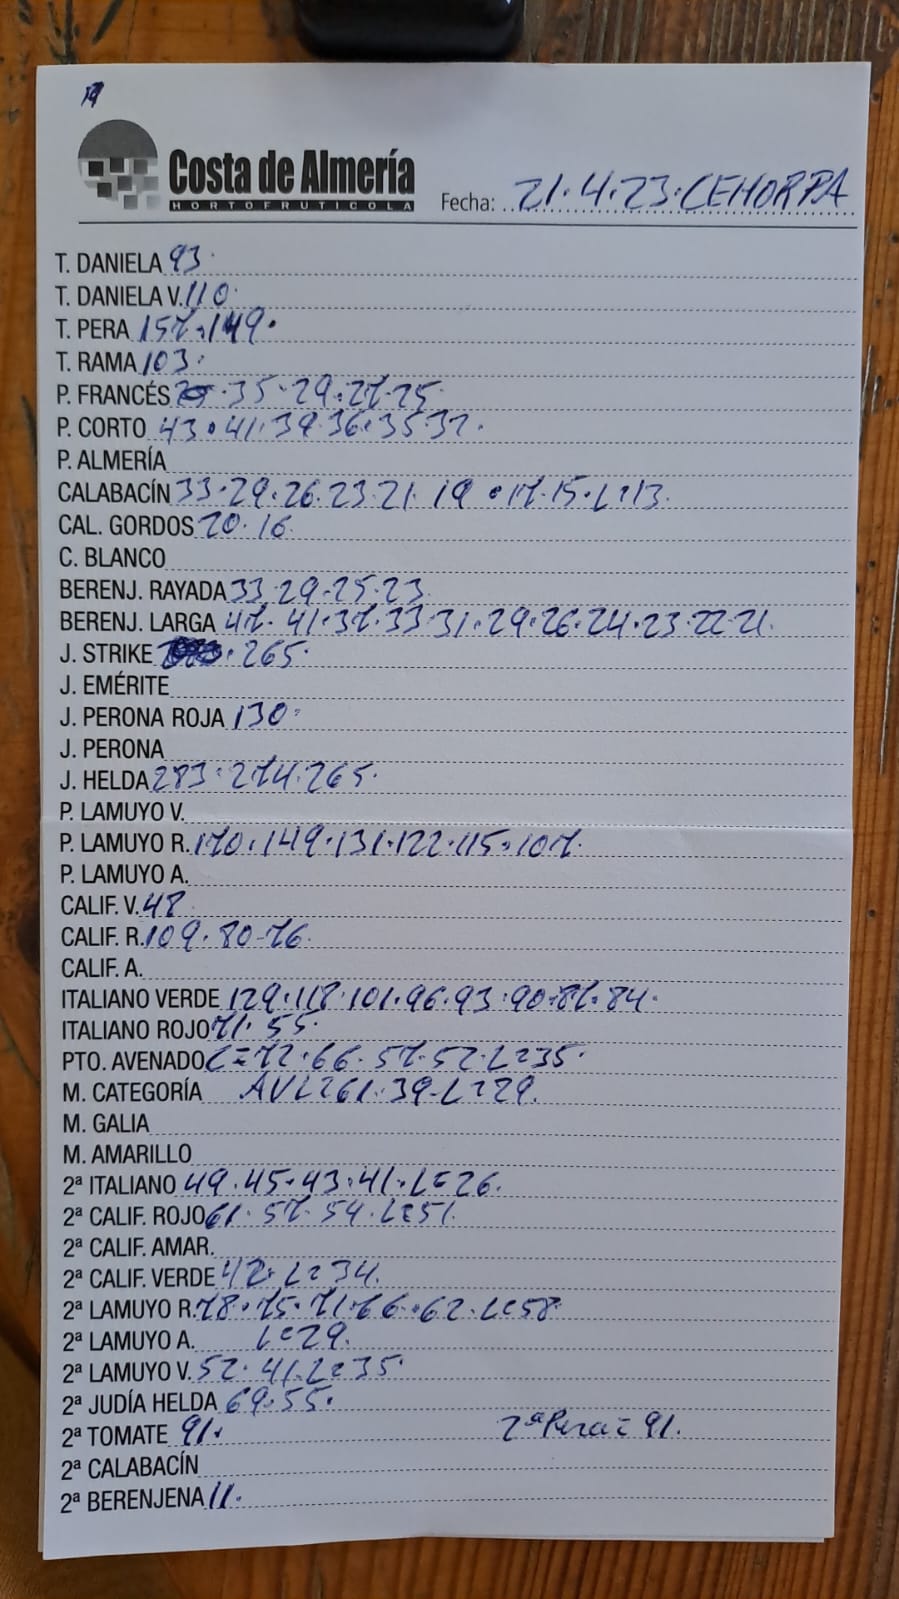 Costa de Almería
HORTOFRUTICOLA
Fecha: 21.4.23.CEHORPA
T. DANIELA 93.
T. DANIELA V. 110.
T. PERA 157.149.
T. RAMA 103.
P. FRANCÉS .35.29.27.25
P. CORTO 43.41.39.36.35.32.
P. ALMERÍA
CALABACÍN 33.29.26.23.21.19.17.15.L=13.
CAL. GORDOS 20.16.
C. BLANCO
BERENJ. RAYADA 33.29.25.23.
BERENJ. LARGA 47.41.37.33.31.29.26.24.23.22.21.
J. STRIKE .265.
J. EMÉRITE
J. PERONA ROJA 130.
J. PERONA
J. HELDA 283.274.265.
P. LAMUYO V.
P. LAMUYO R. 170.149.131.122.115.107.
P. LAMUYO A.
CALIF. V. 48.
CALIF. R. 109.80.76.
CALIF. A.
ITALIANO VERDE 129.118.101.96.93.90.87.84.
ITALIANO ROJO 71.55.
PTO. AVENADO C=72.66.57.52.L=35.
M. CATEGORÍA AVL=61.39.L=29.
M. GALIA
M. AMARILLO
2ª ITALIANO 49.45.43.41.L=26.
2ª CALIF. ROJO 61.57.54.L=51.
2ª CALIF. AMAR.
2ª CALIF. VERDE 42.L=34.
2ª LAMUYO R. 78.75.71.66.62.L=58
2ª LAMUYO A. L=29.
2ª LAMUYO V. 52.41.L=35.
2ª JUDÍA HELDA 69.55.
2ª TOMATE 91. 2ª Pera = 91.
2ª CALABACÍN
2ª BERENJENA 11.